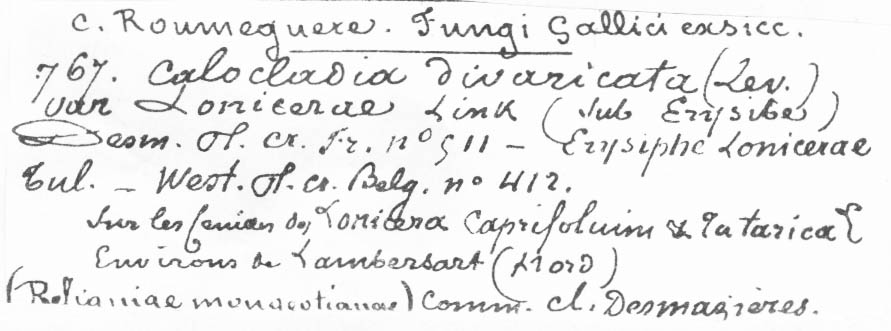 C. Roumeguere. Fungi Gallici exsicc.
767. Calocladia Divaricata (Lev.)
var Lonicerae Link (sub Erysibe)
Desm. Pl. cr. Fr. no 511 — Erysiphe Lonicerae
Tul. — West. Pl. cr. Belg. no 412.
Sur les des Lonicera Caprifolium & Tatarica
Environs de Lambersart (Nord)
(Reliquiae) Comm. cl. Desmazières.